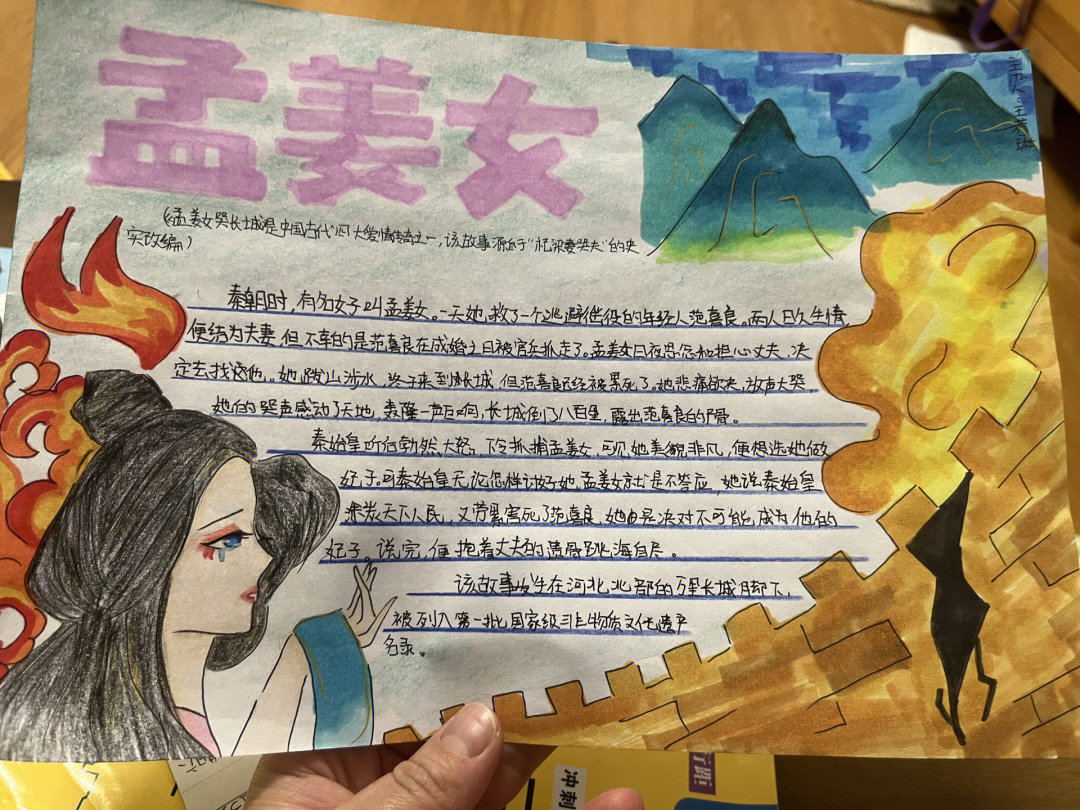 孟姜女
主页人:王若琳
(孟姜女哭长城是中国古代"四大爱情传奇之一,该故事源自于"杞梁妻哭夫"的史
实改编)
秦朝时,有名女子叫孟姜女。一天她,救了一个逃避徭役的年轻人范喜良。两人日久生情,
便结为夫妻,但不幸的是范喜良在成婚之日被官兵抓走了。孟姜女日夜思念和担心丈夫,决
定去找他。她跋山涉水,终于来到长城,但范喜良已经被累死了。她悲痛欲决,放声大哭,
她的哭声感动了天地,轰隆一声巨响,长城倒了八百里,露出范喜良的尸骨。
秦始皇听后勃然大怒,下令抓捕孟姜女,可见她美貌非凡,便想选她做
妃子。可秦始皇无论怎样讨好她,孟姜女就是不答应,她说秦始皇
天下人民,又劳累害死了范喜良,她自是决对不可能成为他的
妃子。说完,便抱着丈夫的遗骨跳海自尽。
该故事发生在河北北部的万里长城脚下,
被列入第一批国家级非物质文化遗产
名录。
冲刺